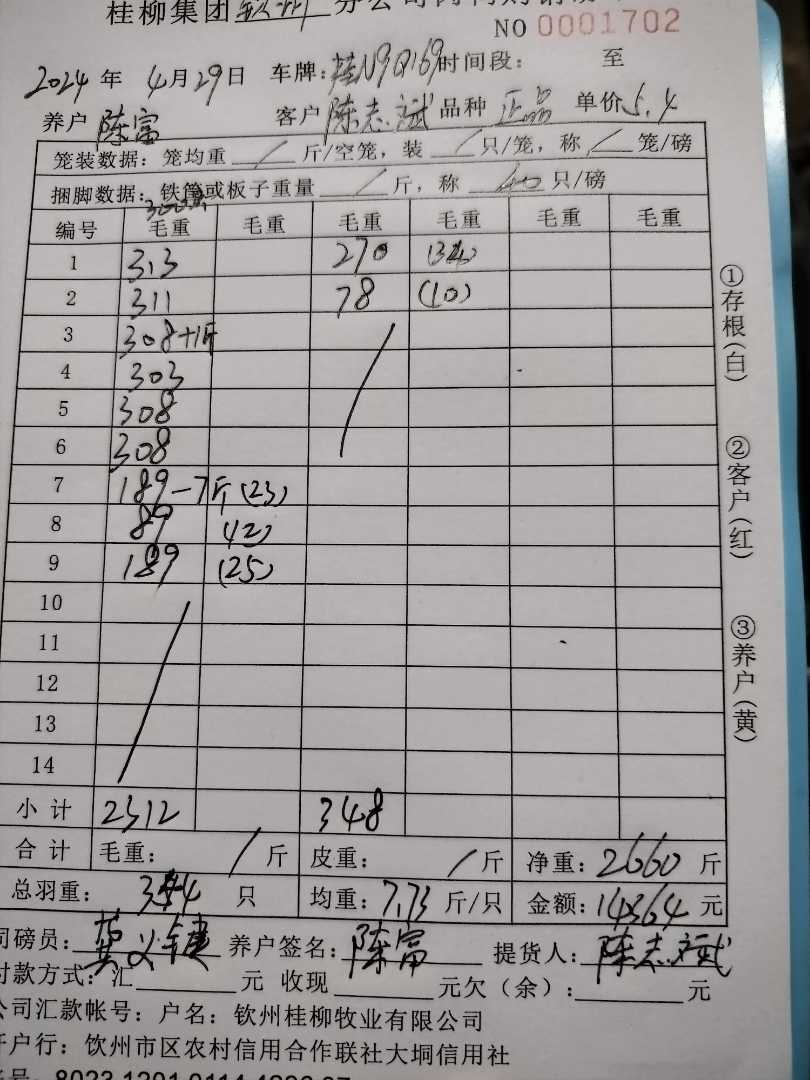 桂柳集团钦州分公司
NO 0001702
2024 年 4月29日 车牌:桂N9Q169 时间段: 至
养户 陈富 客户 陈志斌 品种 正品 单价 5.4
笼装数据:笼均重 / 斤/空笼,装 / 只/笼,称 / 笼/磅
捆脚数据:铁筐或板子重量 / 斤,称 40 只/磅
编号 毛重 毛重 毛重 毛重 毛重 毛重
1 313 270 (34)
2 311 78 (10)
3 308+1斤
4 303
5 308
6 308
7 189-7斤 (23)
8 89 (42)
9 189 (25)
10
11
12
13
14
小计 2312 348
合计 毛重: / 斤 皮重: / 斤 净重: 2660 斤
总羽重: 344 只 均重: 7.73 斤/只 金额: 14364 元
司磅员: 养户签名: 陈富 提货人: 陈志斌
付款方式:汇 元 收现 元欠(余): 元
公司汇款帐号:户名:钦州桂柳牧业有限公司
开户行:饮州市区农村信用合作联社大垌信用社
①存根(白)
②客户(红)
③养户(黄)